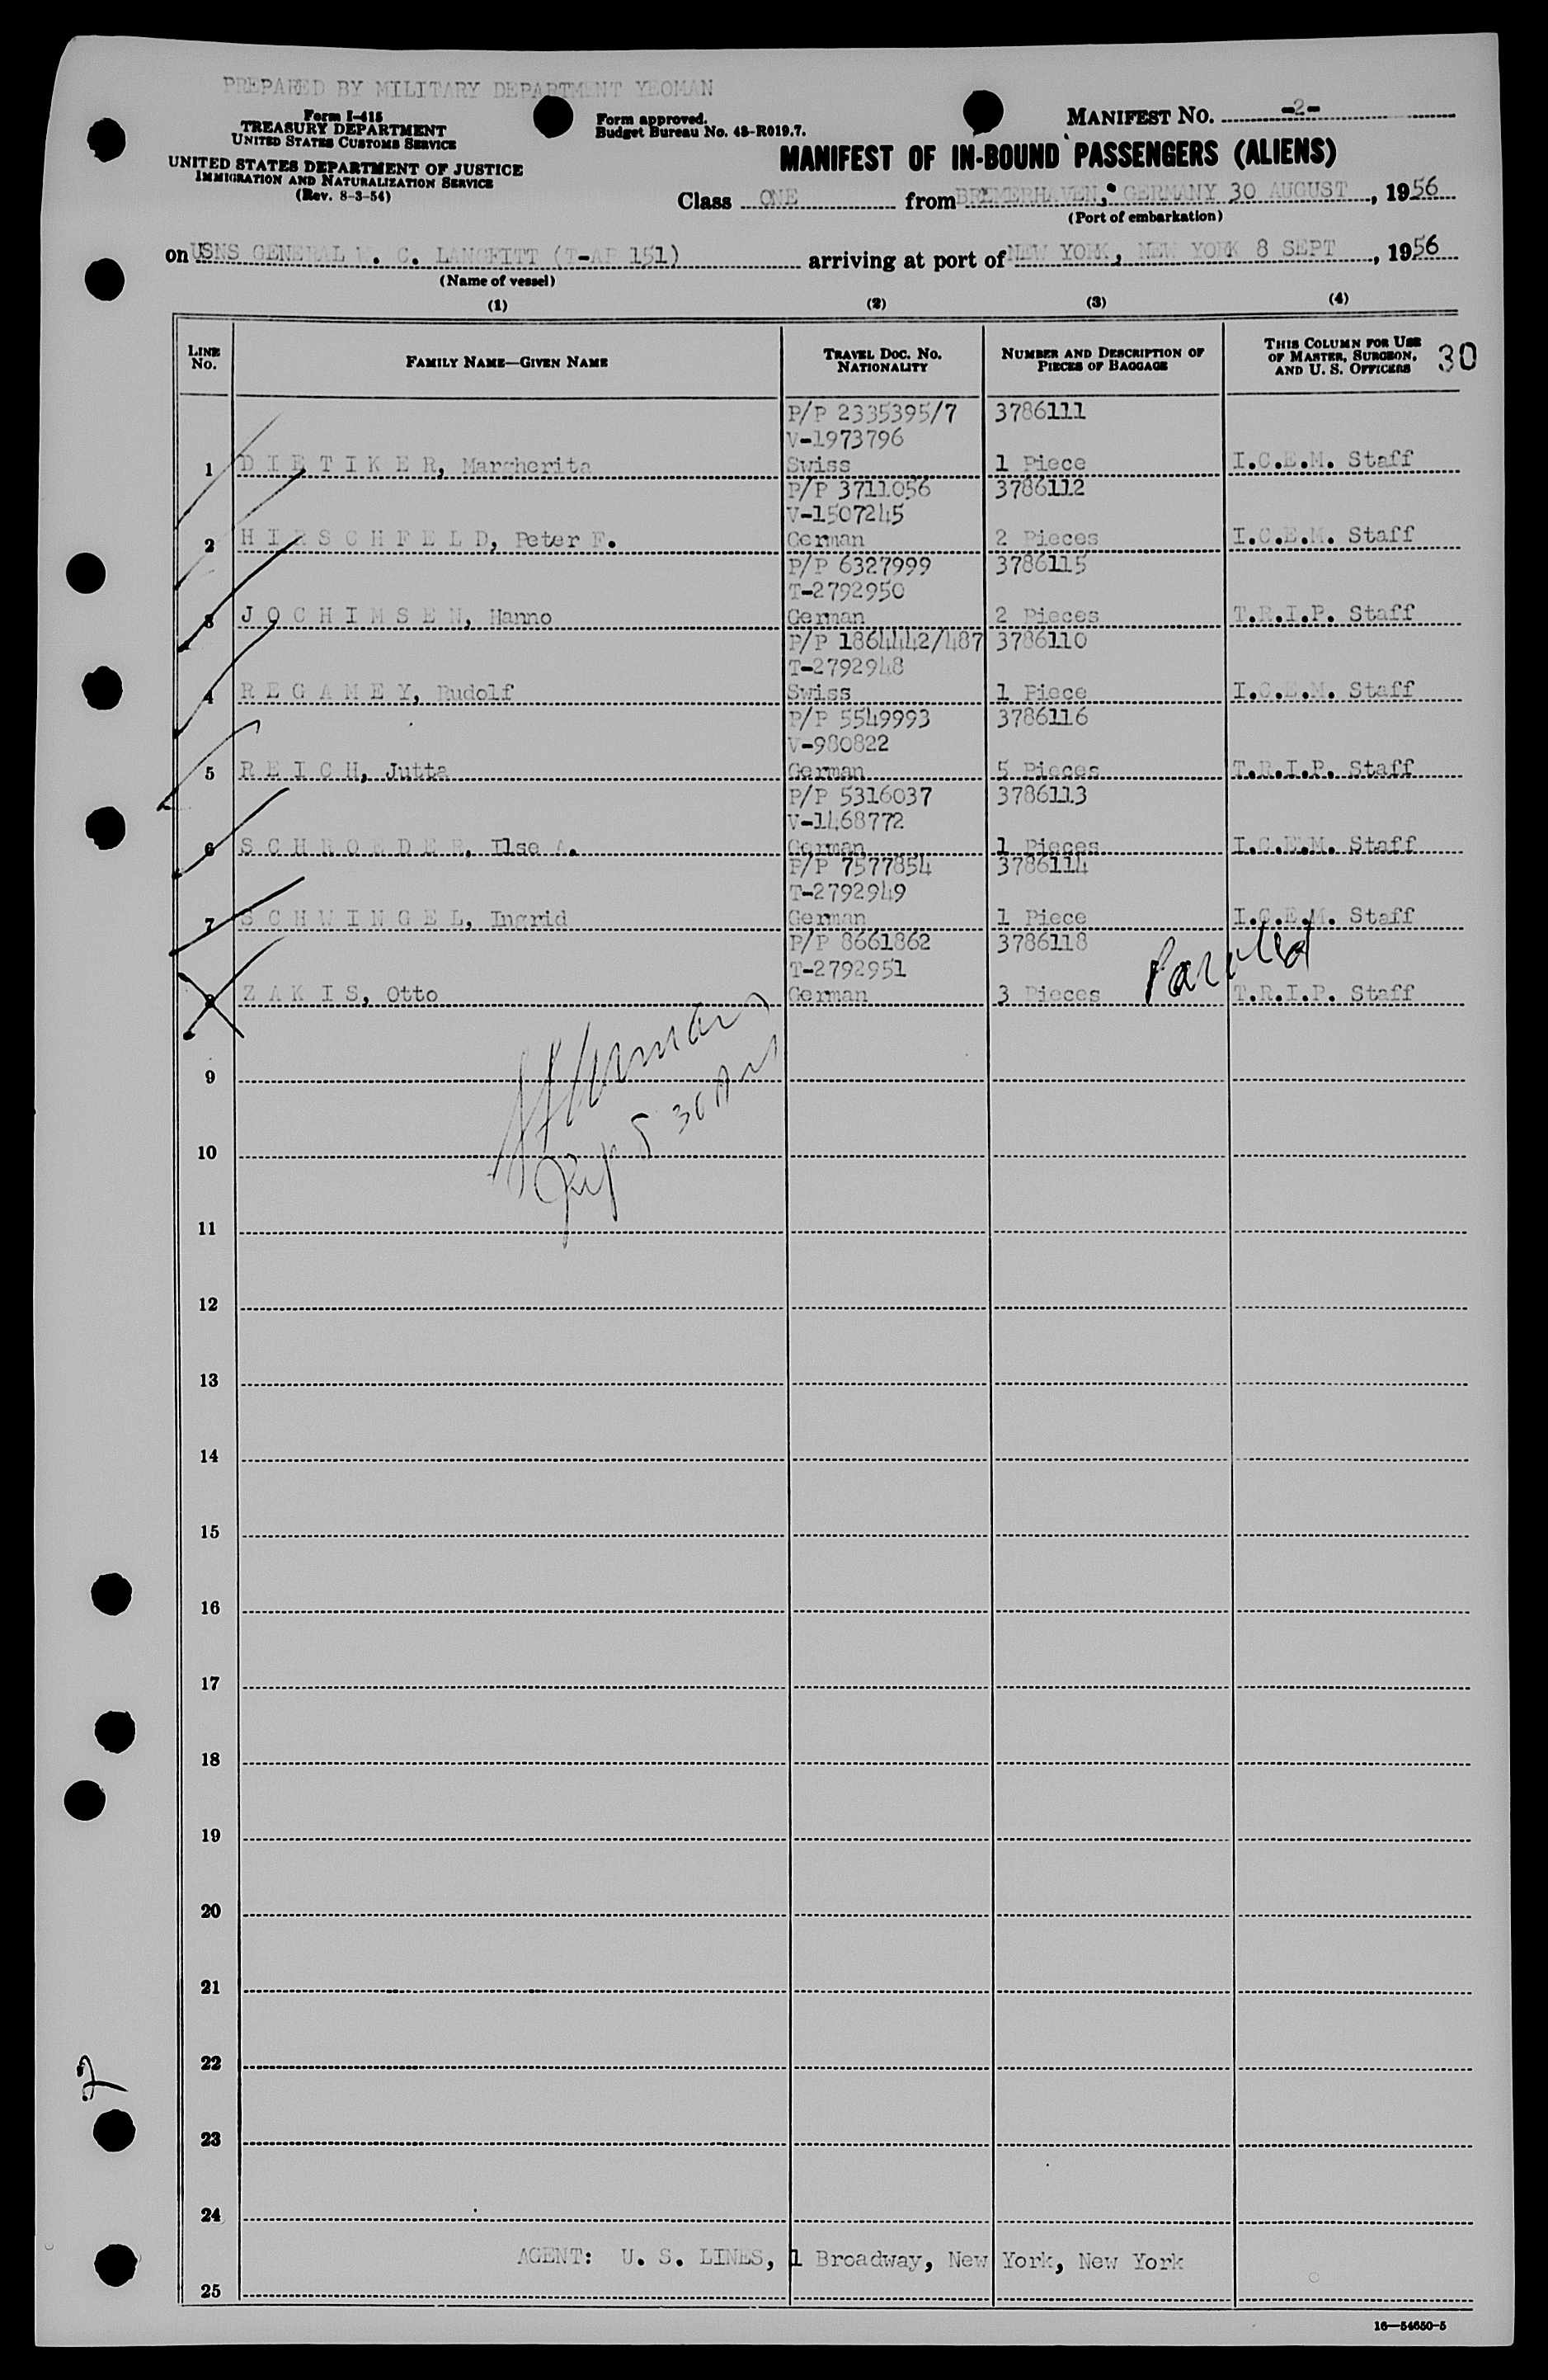 PREPARED BY MILITARY DEPARTMENT YEOMAN
Form I-415
TREASURY DEPARTMENT
UNITED STATES CUSTOMS SERVICE
UNITED STATES DEPARTMENT OF JUSTICE
IMMIGRATION AND NATURALIZATION SERVICE
(Rev. 8-3-54)
Form approved.
Budget Bureau No. 43-R019.7.
MANIFEST No. -2-
MANIFEST OF IN-BOUND PASSENGERS (ALIENS)
Class ONE from BREMERHAVEN, GERMANY 30 AUGUST, 1956
(Port of embarkation)
on USNS GENERAL W. C. LANGFITT (T-AP 151) arriving at port of NEW YORK, NEW YORK 8 SEPT, 1956
(Name of vessel)
(1) (2) (3) (4)
LINE No. FAMILY NAME—GIVEN NAME TRAVEL DOC. NO. NATIONALITY NUMBER AND DESCRIPTION OF PIECES OF BAGGAGE THIS COLUMN FOR USE OF MASTER, SURGEON, AND U. S. OFFICERS 30
P/P 2335395/7 3786111
V-1973796
1 D I E T I K E R, Margherita Swiss 1 Piece I.C.E.M. Staff
P/P 3711056 3786112
V-1507245
2 H I R S C H F E L D, Peter F. German 2 Pieces I.C.E.M. Staff
P/P 6327999 3786115
T-2792950
3 J O C H I M S E N, Hanno German 2 Pieces T.R.I.P. Staff
P/P 1864442/487 3786110
T-2792948
4 R E G A M E Y, Rudolf Swiss 1 Piece I.C.E.M. Staff
P/P 5549993 3786116
V-980822
5 R E I C H, Jutta German 5 Pieces T.R.I.P. Staff
P/P 5316037 3786113
V-1468772
6 S C H R O E D E R, Ilse A. German 1 Pieces I.C.E.M. Staff
P/P 7577854 3786114
T-2792949
7 S C H W I N G E L, Ingrid German 1 Piece I.C.E.M. Staff
P/P 8661862 3786118 Paroled
T-2792951
8 Z A K I S, Otto German 3 Pieces T.R.I.P. Staff
9
10
11
12
13
14
15
16
17
18
19
20
21
22
2
23
24
AGENT: U. S. LINES, 1 Broadway, New York, New York
25
16—54650-5